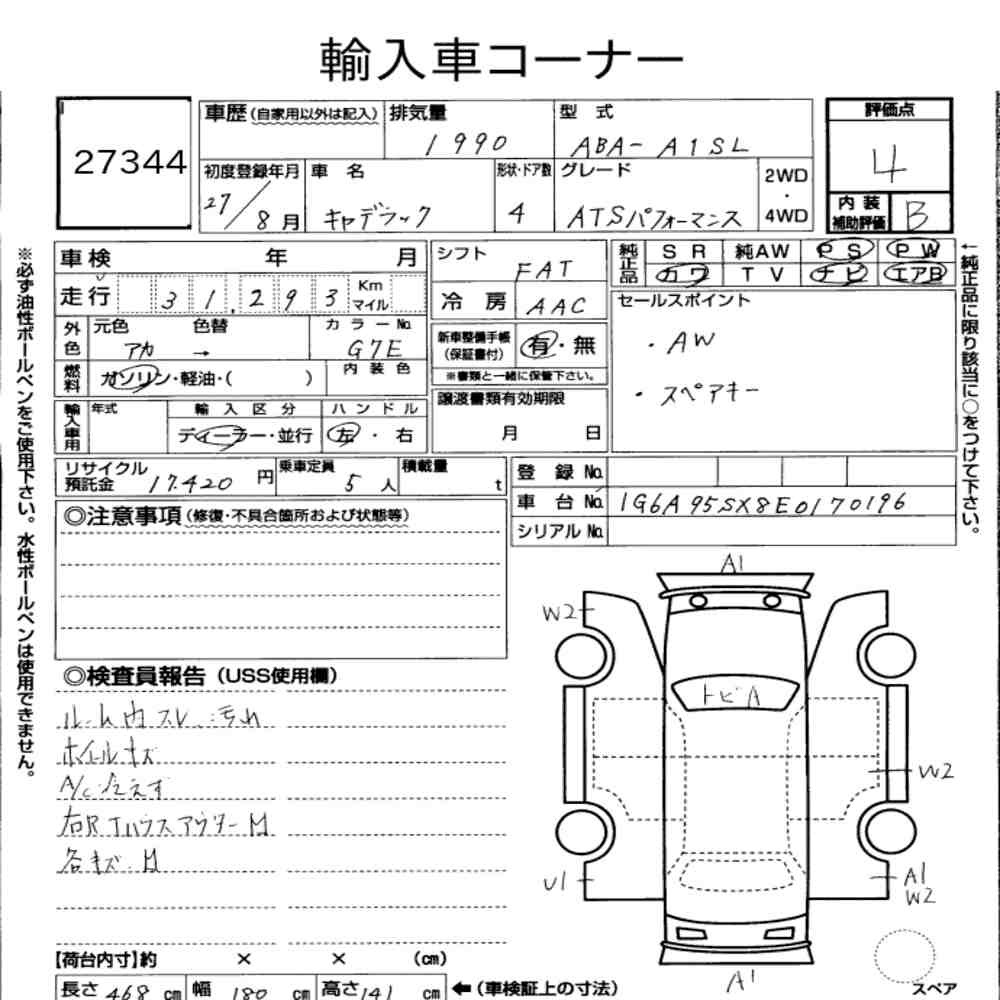 輸入車コーナー
27344
車歴(自家用以外は記入)
排気量
1990
型式
ABA-A1SL
評価点
4
内装
補助評価
B
初度登録年月
27/8月
車名
キャデラック
形状・ドア数
4
グレード
ATSパフォーマンス
2WD
・
4WD
車検 年 月
走行 31,293 Km
マイル
外色
元色 色替
アカ →
カラーNo.
G7E
燃料
ガソリン・軽油・( )
内装色
輸入車用
年式
輸入区分
ディーラー・並行
ハンドル
左・右
シフト
FAT
冷房
AAC
新車整備手帳
(保証書付)
有・無
※書類と一緒に保管下さい。
譲渡書類有効期限
月 日
純正品
SR 純AW PS PW
カワ TV ナビ エアB
セールスポイント
・AW
・スペアキー
リサイクル
預託金
17.420円
乗車定員
5人
積載量
t
登録No.
車台No.
1G6A95SX8E0170196
シリアルNo.
◎注意事項(修復・不具合箇所および状態等)
◎検査員報告(USS使用欄)
ルーム内スレ.汚れ
ホイルキズ
A/C冷えず
右RTハウスアウターM
各キズ.M
【荷台内寸】約 × × (cm)
長さ 468 cm
幅 180 cm
高さ 141 cm
←(車検証上の寸法)
※必ず油性ボールペンをご使用下さい。水性ボールペンは使用できません。
←純正品に限り該当に○をつけて下さい。
A1
W2
トビA
W2
U1
A1
W2
A1
スペア